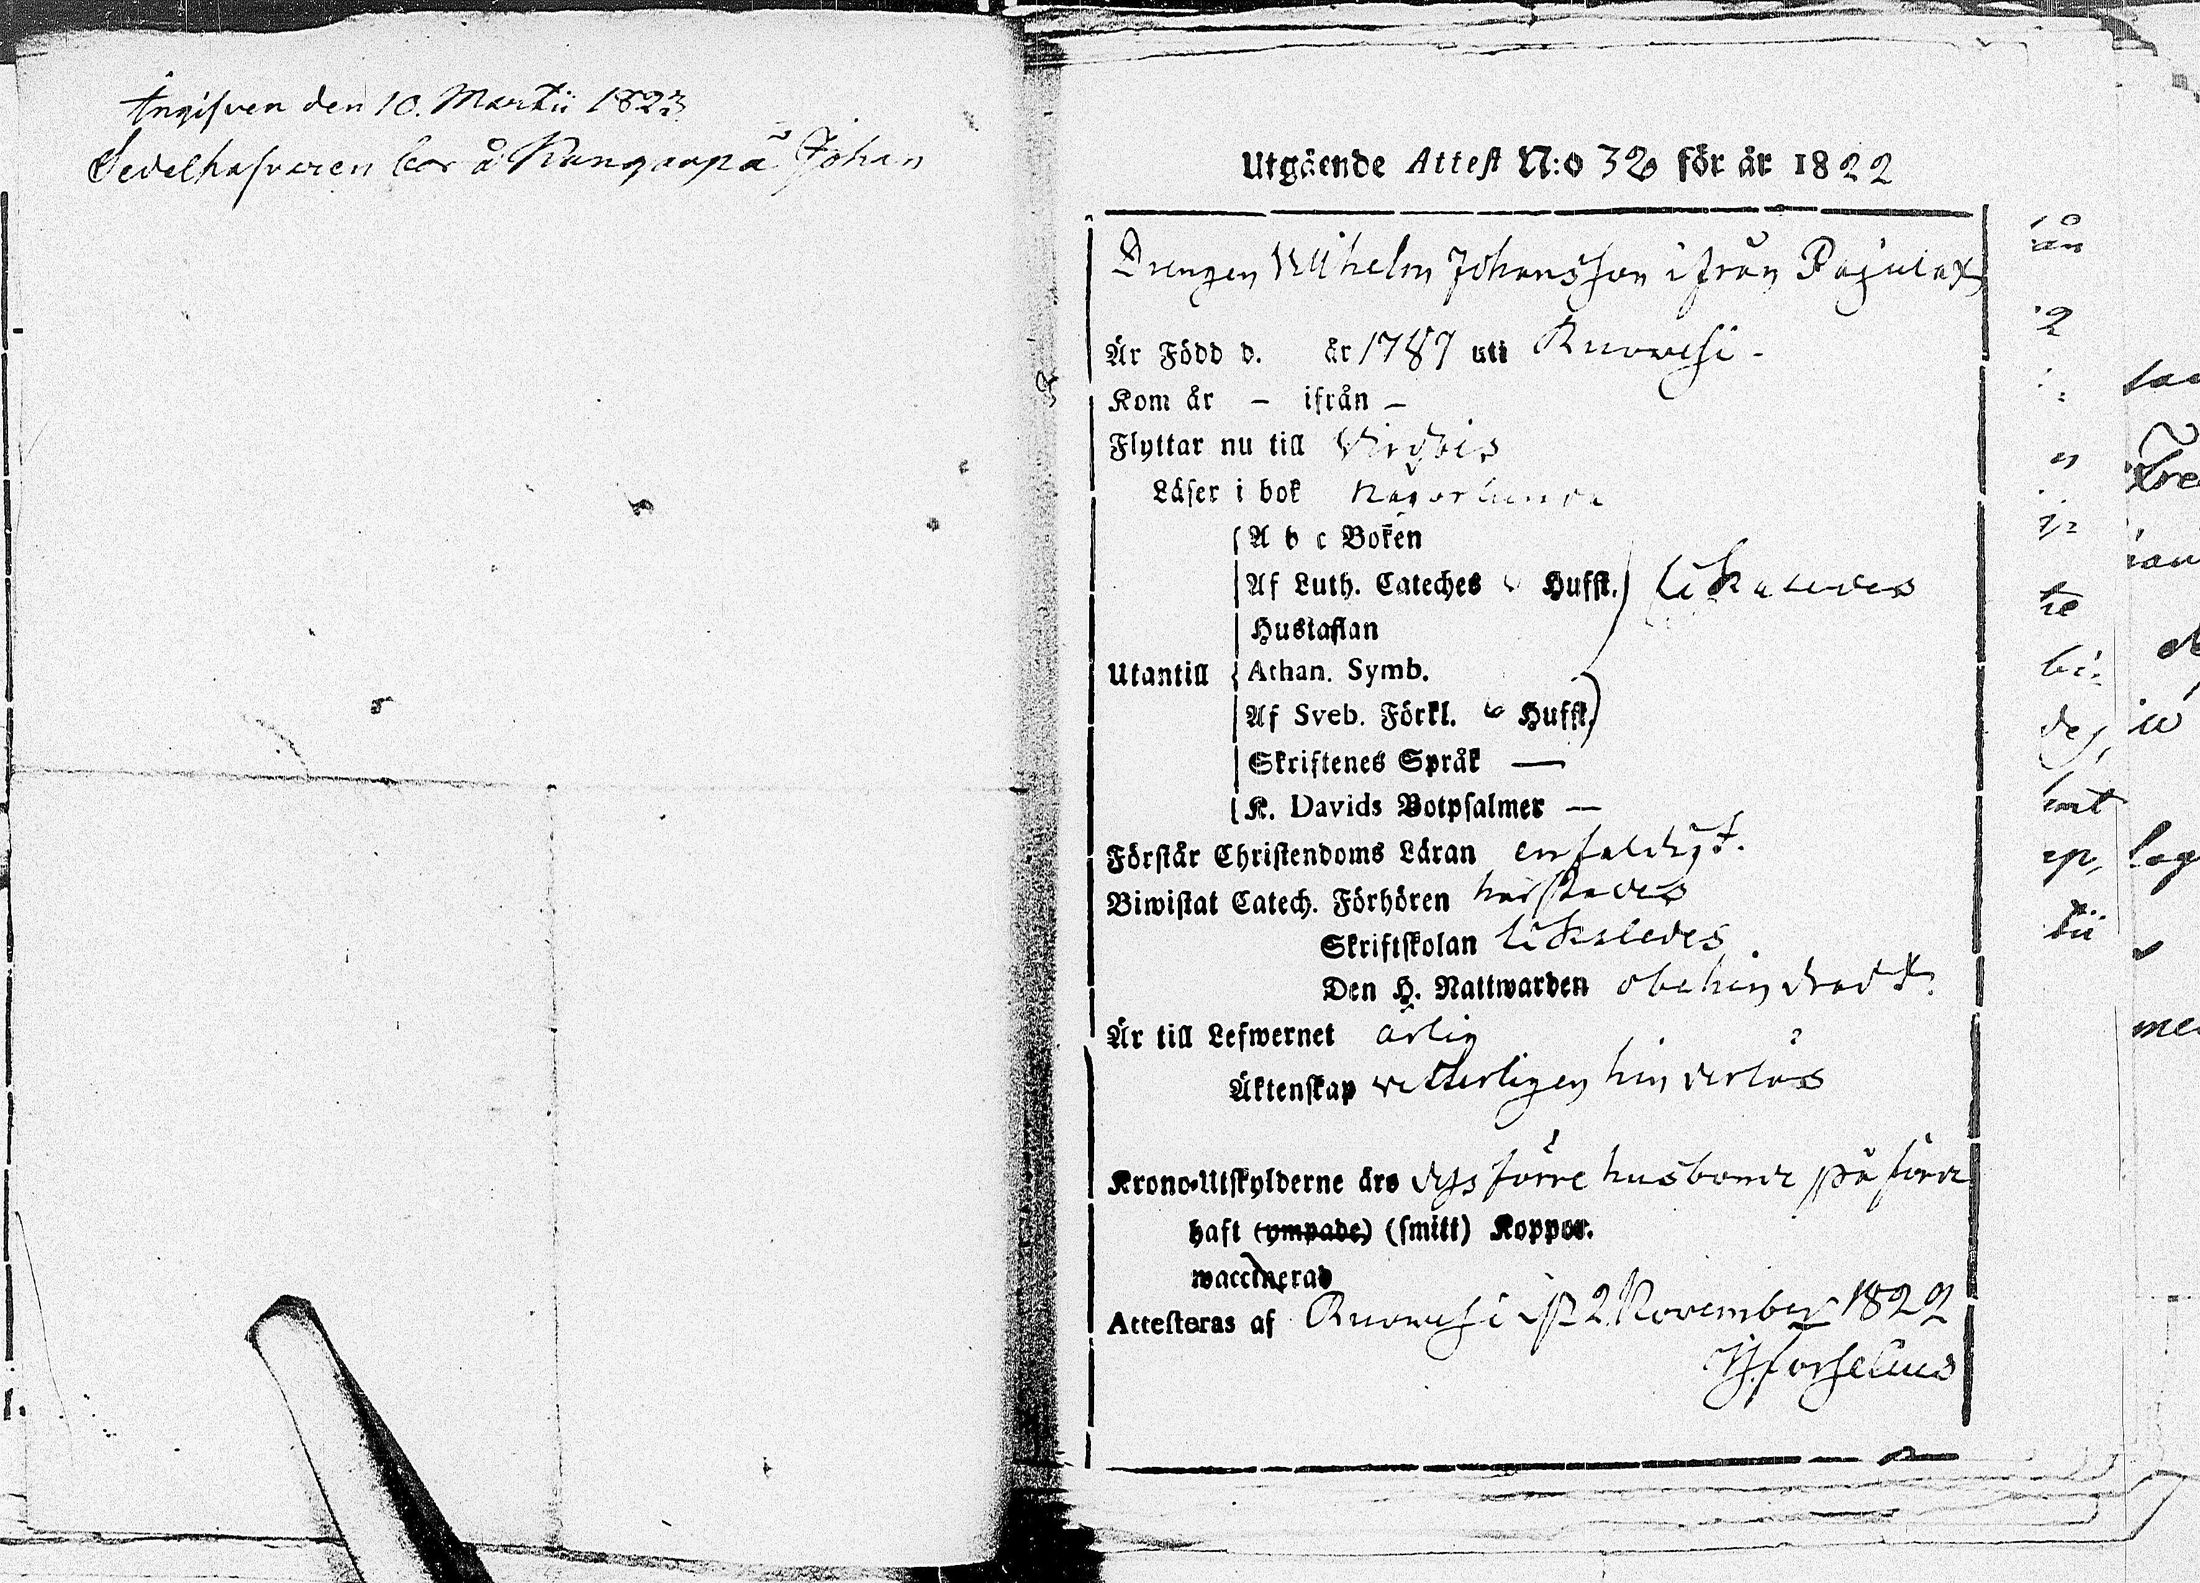 Ingifven den 10. Martii 1823
Sedelhafvaren bor å Kangarpä Johan
Utgående Attest N:o 32 för år 1822
Drengen Wilhelm Johansson ifrån Pajulax
Är Född d. år 1787 uti Ruovesi -
Kom år - ifrån -
Flyttar nu till Virdois
Läser i bok någorlunda
A b c Boken
Af Luth. Cateches 6 Hufst. likaledes
Hustaflan
Utantill Athan. Symb.
Af Sveb. Förkl. 6 Hufst.
Skriftenes Språk —
K. Davids Botpsalmer —
Förstår Christendoms Läran enfaldigt.
Biwistat Catech. Förhören
Skriftskolan likaledes
Den H. Nattwarden obehindradt.
Är till Lefwernet ärlig
Äktenskap vetterligen hinderlös
Krono-Utskylderne års dess förre husbonde påförde
haft (ympade) (smitt) Koppor.
waccinerad
Attesteras af Ruovesi d. 2 November 1822
Hforselius